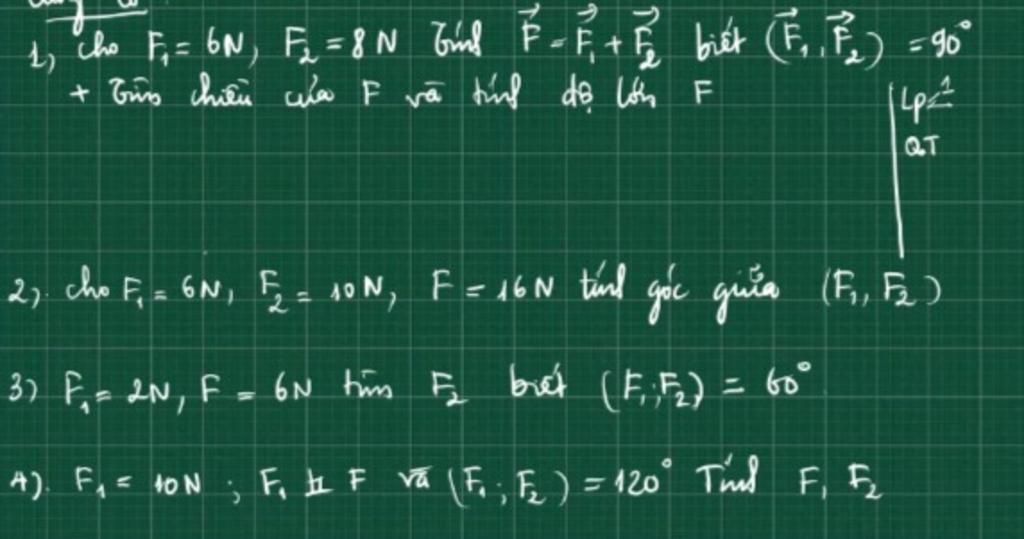 1, cho F₁ = 6N, F₂ = 8N Tính F⃗ = F⃗₁ + F⃗₂ biết (F⃗₁, F⃗₂) = 90°
+ Tìm chiều của F và tính độ lớn F
Lp
QT
2). cho F₁ = 6N, F₂ = 10N, F = 16N tính góc giữa (F₁, F₂)
3) F₁ = 2N, F = 6N tìm F₂ biết (F₁; F₂) = 60°
4). F₁ = 10N ; F₁ F và (F₁; F₂) = 120° Tính F, F₂